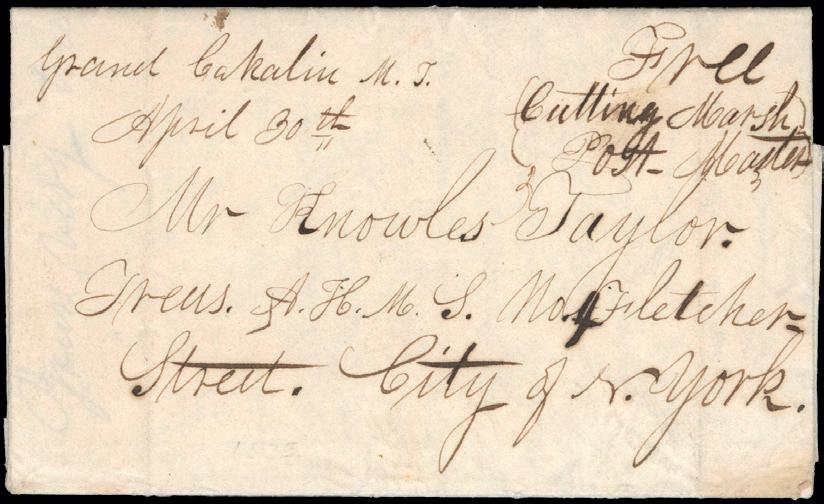 Grand Cakalin M. T.
April 30th
Free
Cutting Marsh
Post Master
Mr Knowles Taylor.
Treas. A. H. M. S. No. 4 Fletcher
Street. City of N. York.